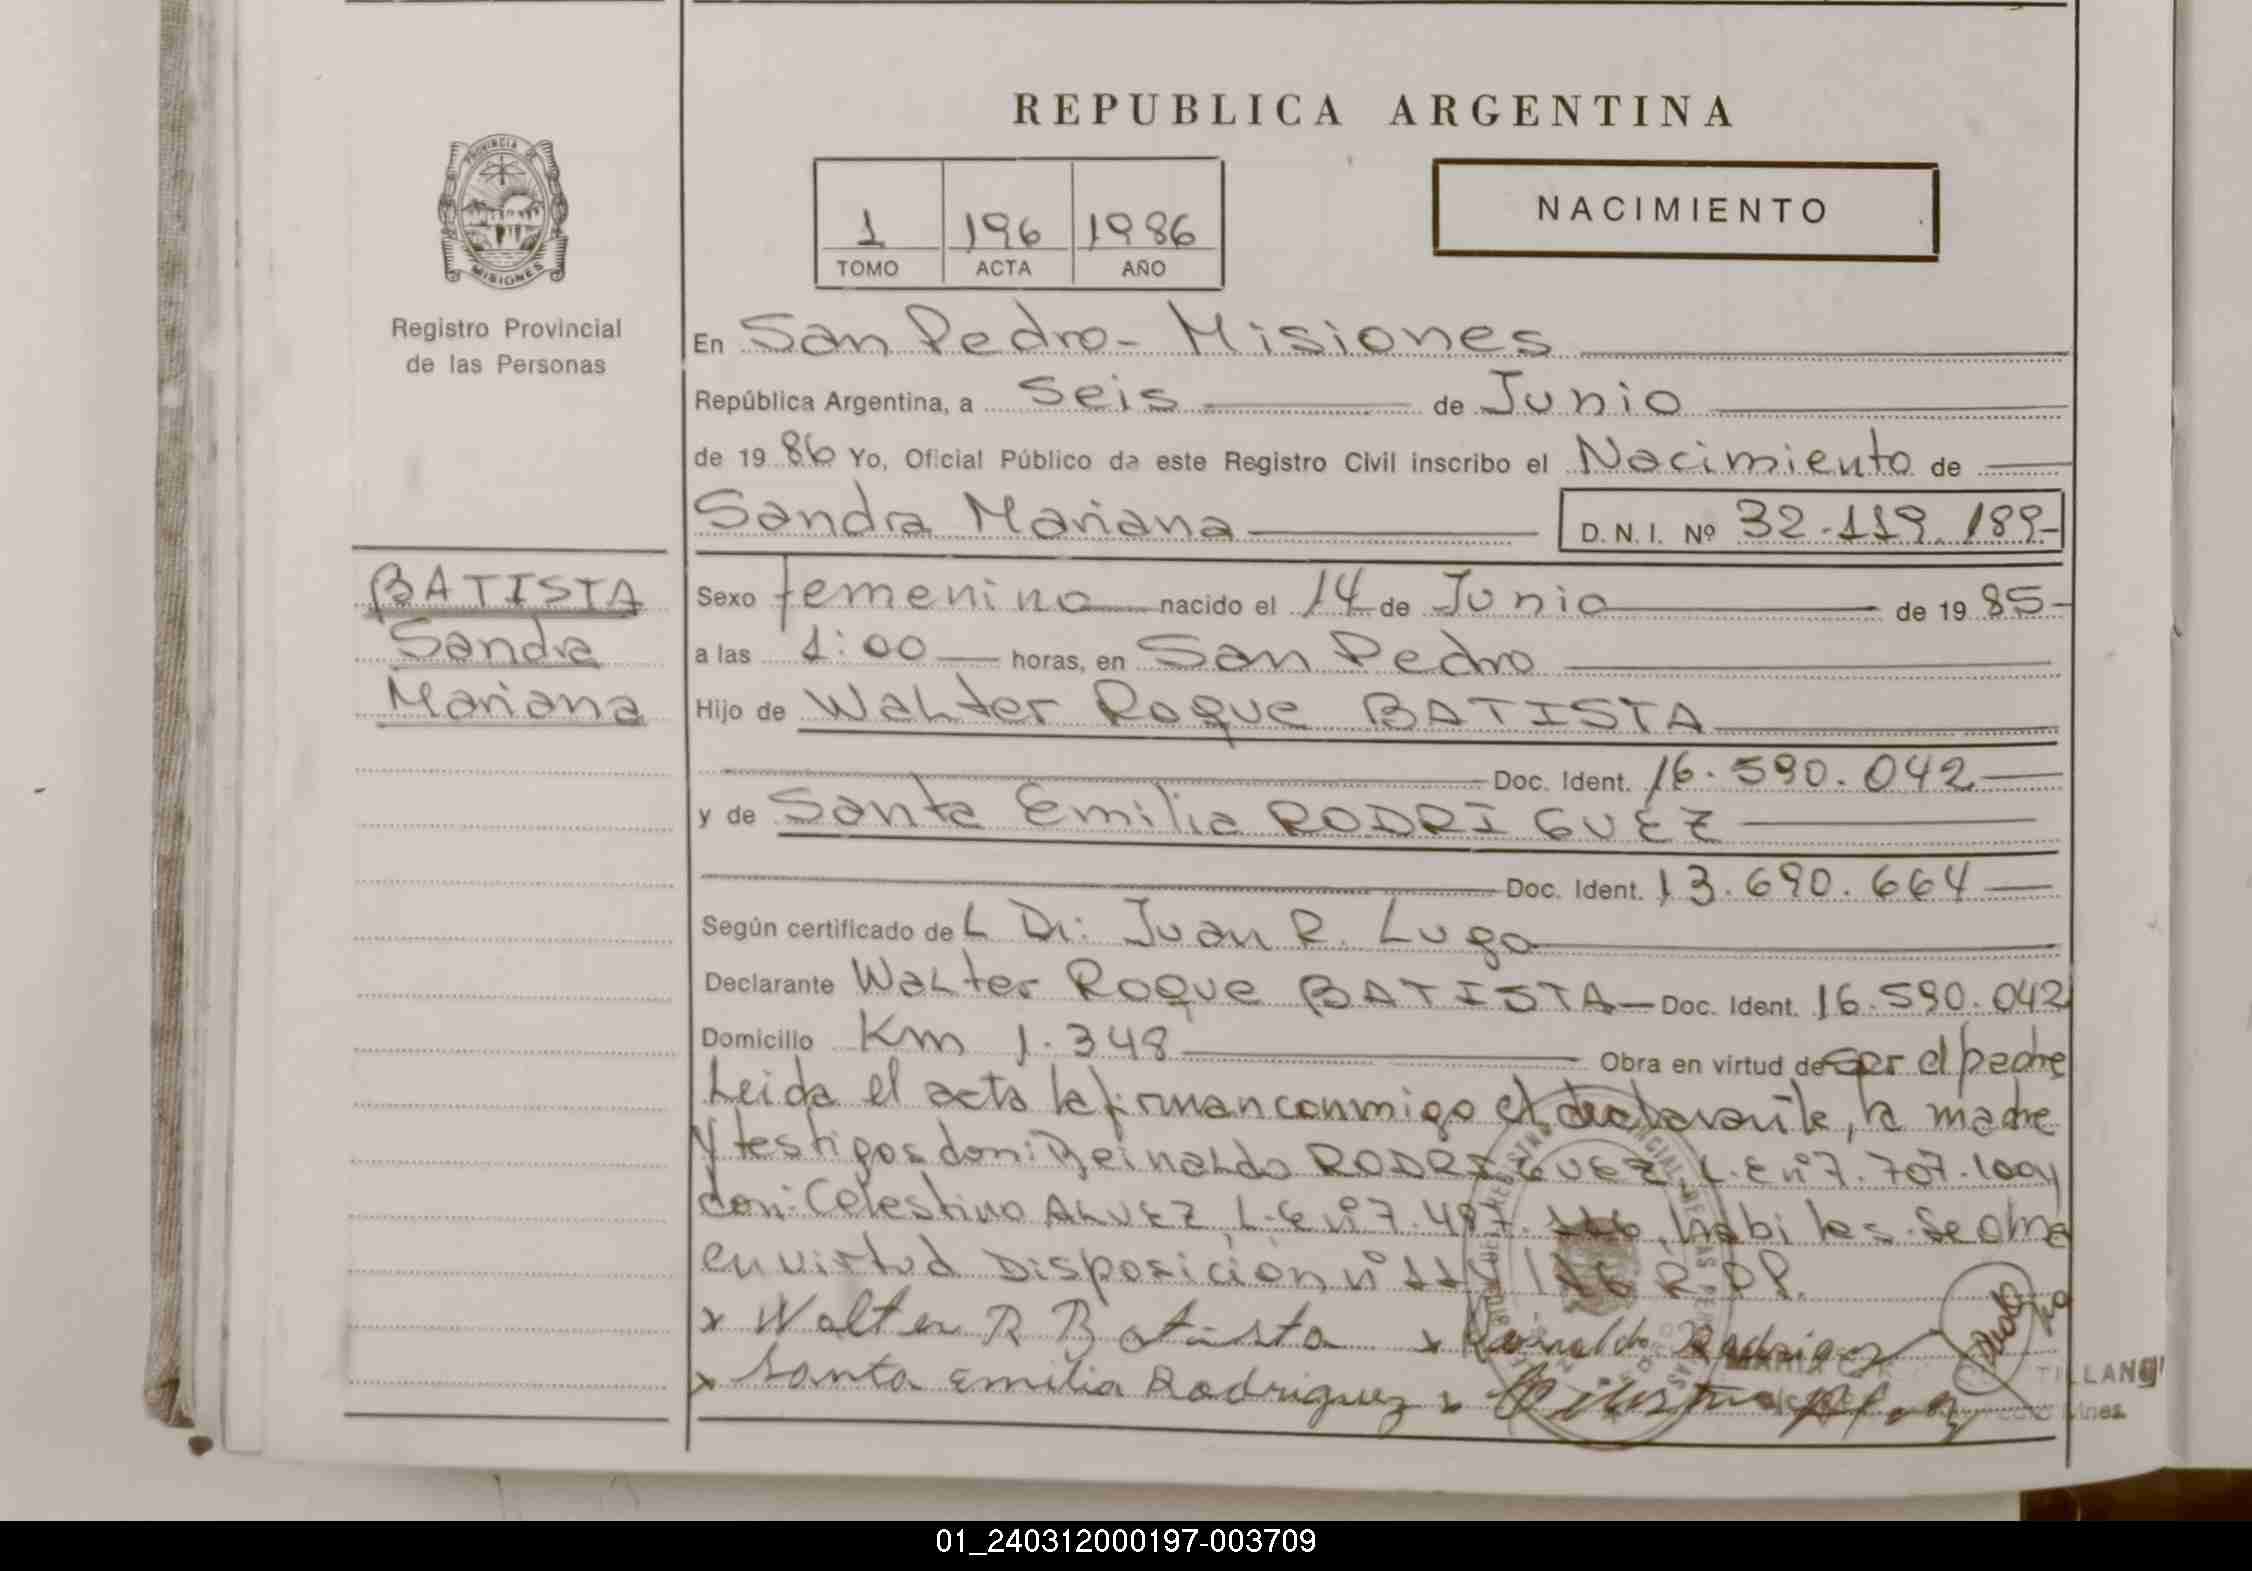 REPUBLICA ARGENTINA
PROVINCIA DE
MISIONES
Registro Provincial
de las Personas
1 196 1986
TOMO ACTA AÑO
NACIMIENTO
En San Pedro - Misiones
República Argentina, a seis de Junio
de 1986 Yo, Oficial Público de este Registro Civil inscribo el Nacimiento de
Sandra Mariana D. N. I. Nº 32.119.189-
BATISTA
Sandra
Mariana
Sexo femenino nacido el 14 de Junio de 1985-
a las 1:00 horas, en San Pedro
Hijo de Walter Roque BATISTA
Doc. Ident. 16.590.042
y de Santa Emilia RODRIGUEZ
Doc. Ident. 13.690.664
Según certificado del Dr: Juan R. Lugo
Declarante Walter Roque BATISTA - Doc. Ident. 16.590.042
Domicilio Km 1.348 Obra en virtud de ser el padre
Leida el acta la firman conmigo el declarante, la madre
y testigos don: Reinaldo RODRIGUEZ, L.E nº 7.707.100 y
don: Celestino ALVEZ, L.E nº 7.497.116, habiles. Se obra
en virtud Disposición nº R.P.P.
x Walter R Batista x Reinaldo Rodriguez
x Santa Emilia Rodriguez x
01_240312000197-003709